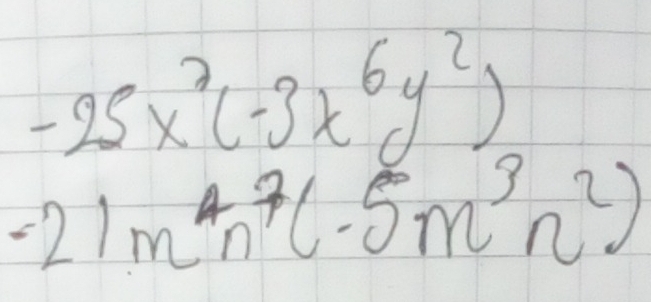 -25x⁷(-3x⁶y²)
-21m⁴n⁷(-5m³n²)